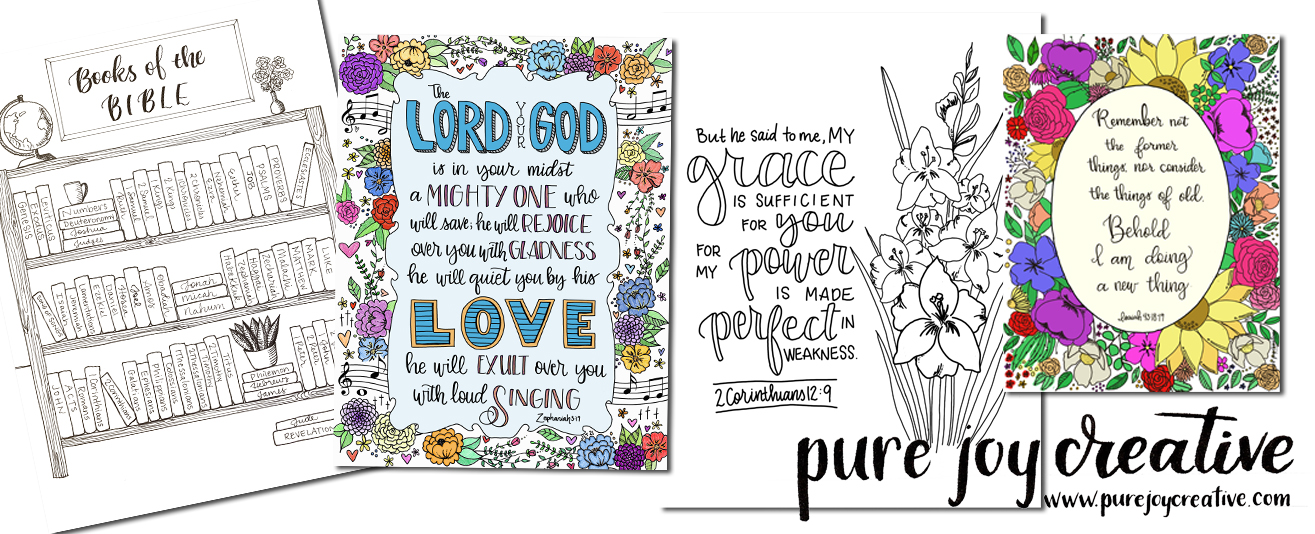 Books of the
BIBLE
Genesis
Exodus
Leviticus
Numbers
Deuteronomy
Joshua
Judges
Ruth
1 Samuel
2 Samuel
1 Kings
2 Kings
1 Chronicles
2 Chronicles
Ezra
Nehemiah
Esther
JOB
PSALMS
PROVERBS
Isaiah
Jeremiah
Lamentations
Ezekiel
Daniel
Hosea
Joel
Amos
Obadiah
Jonah
Micah
Nahum
Habakkuk
Zephaniah
Haggai
Zechariah
Malachi
MATTHEW
MARK
LUKE
JOHN
ACTS
Romans
1 Corinthians
2 Corinthians
Galatians
Ephesians
Philippians
Colossians
1 Thessalonians
2 Thessalonians
1 Timothy
2 Timothy
Titus
Philemon
Hebrews
James
1 Peter
2 Peter
1 John
Jude
REVELATION
The
LORD YOUR GOD
is in your midst
a MIGHTY ONE who
will save; he will REJOICE
over you with GLADNESS
he will quiet you by his
LOVE
he will EXULT over you
with loud SINGING
Zephaniah 3:17
But he said to me, MY
grace
IS SUFFICIENT
FOR you
FOR MY power
IS MADE
perfect IN
WEAKNESS.
2 Corinthians 12:9
Remember not
the former
things, nor consider
the things of old.
Behold
I am doing
a new thing
pure joy creative
www.purejoycreative.com